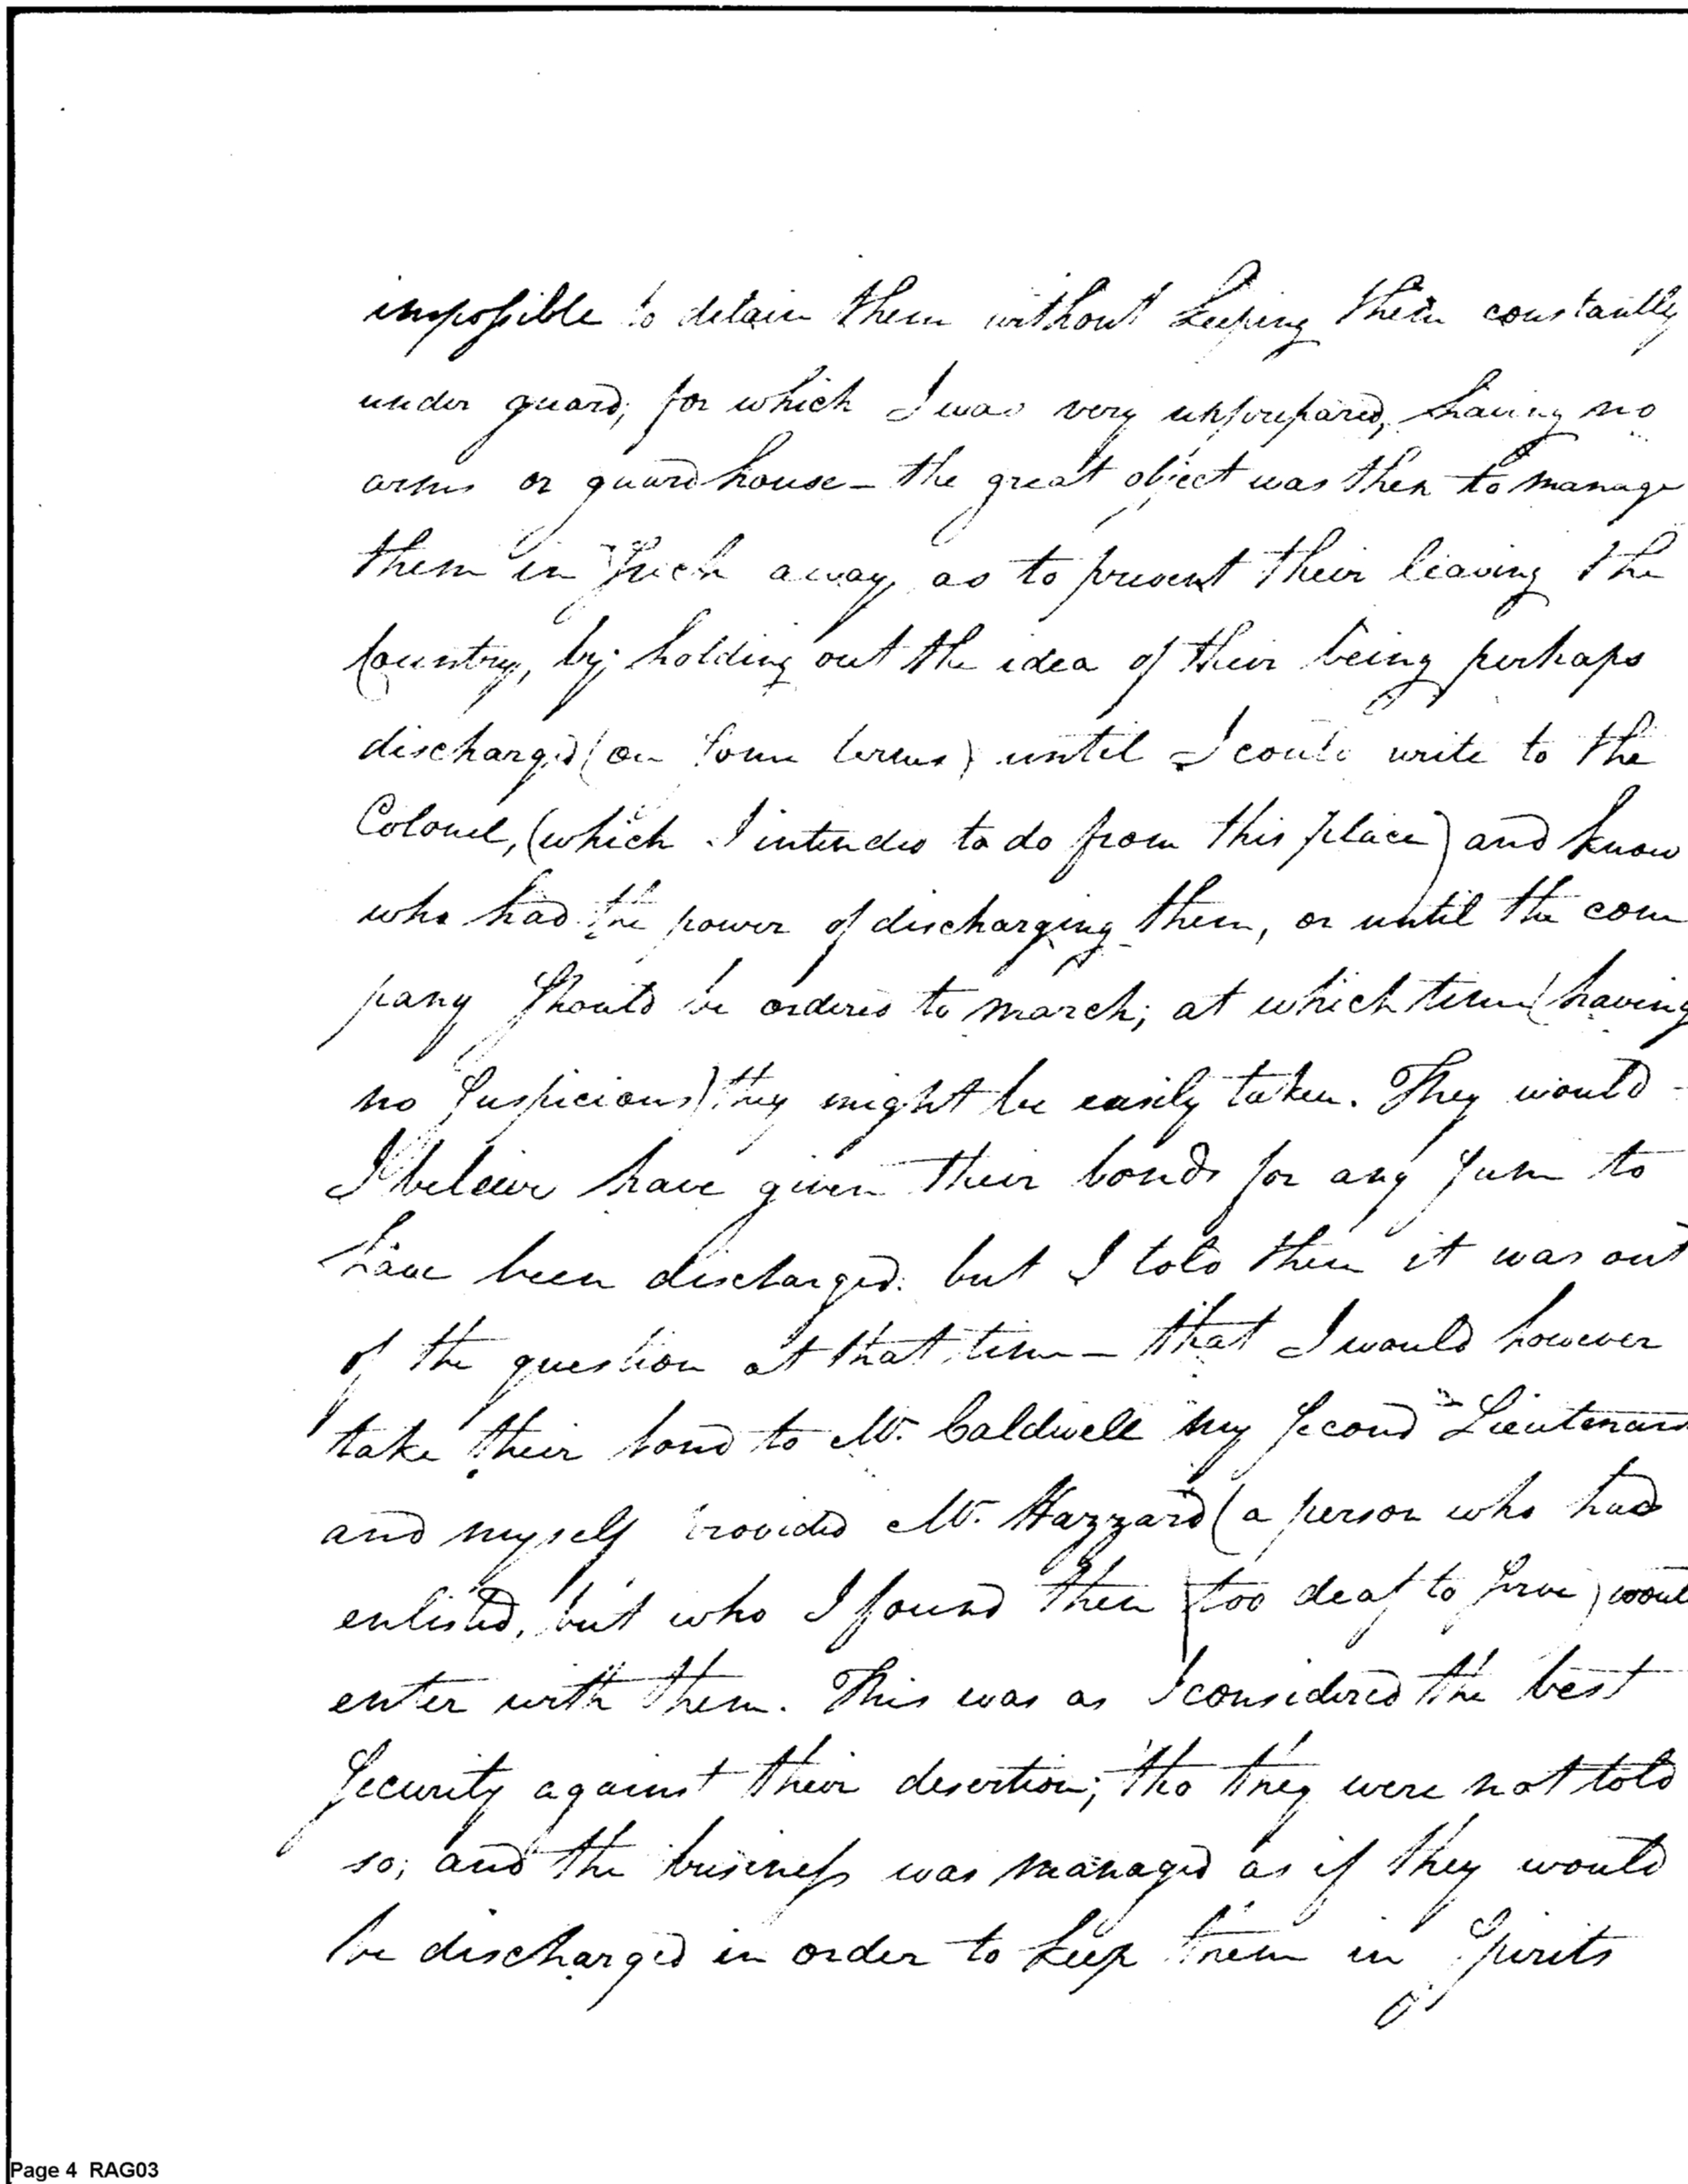 impossible to detain them without keeping them constantly
under guard; for which I was very unprepared, having no
arms or guard house – the great object was then to manage
them in such a way, as to prevent their leaving the
Country, by holding out the idea of their being perhaps
discharged (on some terms) until I could write to the
Colonel, (which I intended to do from this place) and know
who had the power of discharging them, or until the com
pany should be ordered to march; at which time (having
no suspicions) they might be easily taken. They would –
I beleive have given their bonds for any sum to
have been discharged. but I told them it was out
of the question at that time – that I would however
take their bond to Mr. Caldwell my second Lieutenant
and myself provided Mr. Hazzard (a person who had
enlisted, but who I found then too deaf to serve) would
enter with them. This was as I considered the best
security against their desertion; tho they were not told
so; and the business was managed as if they would
be discharged in order to keep them in spirits
Page 4 RAG03